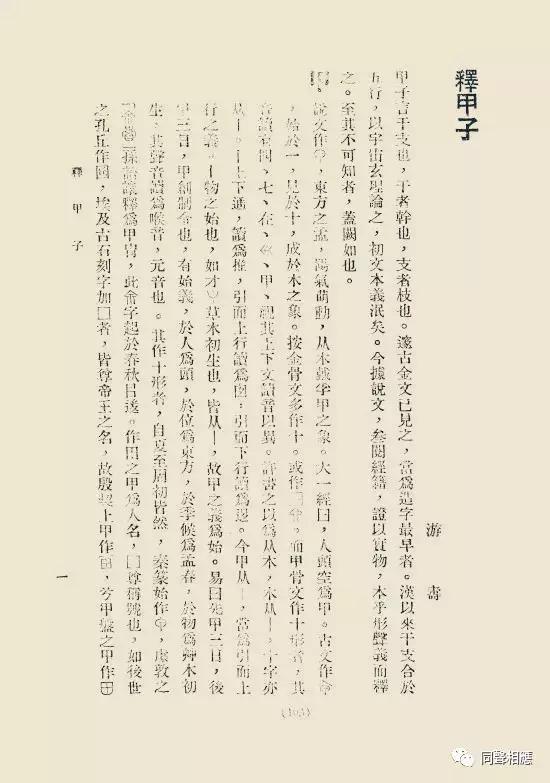 釋甲子
游 壽
甲子言干支也，干者幹也，支者枝也。邃古金文已見之，當爲造字最早者。漢以來干支合於
五行，以宇宙玄理論之，初文本義泯矣。今據說文，叁閱經籍，證以實物，本乎形聲義而釋
之。至其不可知者，蓋闕如也。
說文作，東方之孟，陽氣萌動，从木戴孚甲之象。大一經曰，人頭空爲甲。古文作
，始於一，見於十，成於木之象。按金骨文多作十。或作。而甲骨文作十形者，其
音讀有、七、在、、甲、視其上下文讀音以異。許書之以爲从木，木从丨，十字亦
从丨。丨上下通，讀爲推，引而上行讀爲囟，引而下行讀爲退。今甲从丨，當爲引而上
行之義。丨物之始也，如才草木初生也，皆从丨，故甲之義爲始。易曰先甲三日，後
甲三日，甲創制令也，有始義，於人爲頭，於位爲東方，於季候爲孟春，於物爲艸木初
生，其聲音讀爲喉音，元音也。其作十形者，自夏至周初皆然，秦篆始作，虘敦之
孫詒讓釋爲甲冑，此命字起於春秋呂逵。作田之甲爲人名，囗尊稱號也，如後世
之孔丘作，埃及古石刻字加囗者，皆尊帝王之名，故殷契上甲作田，兮甲盤之甲作田
釋甲子
一
(103)
同聲相應